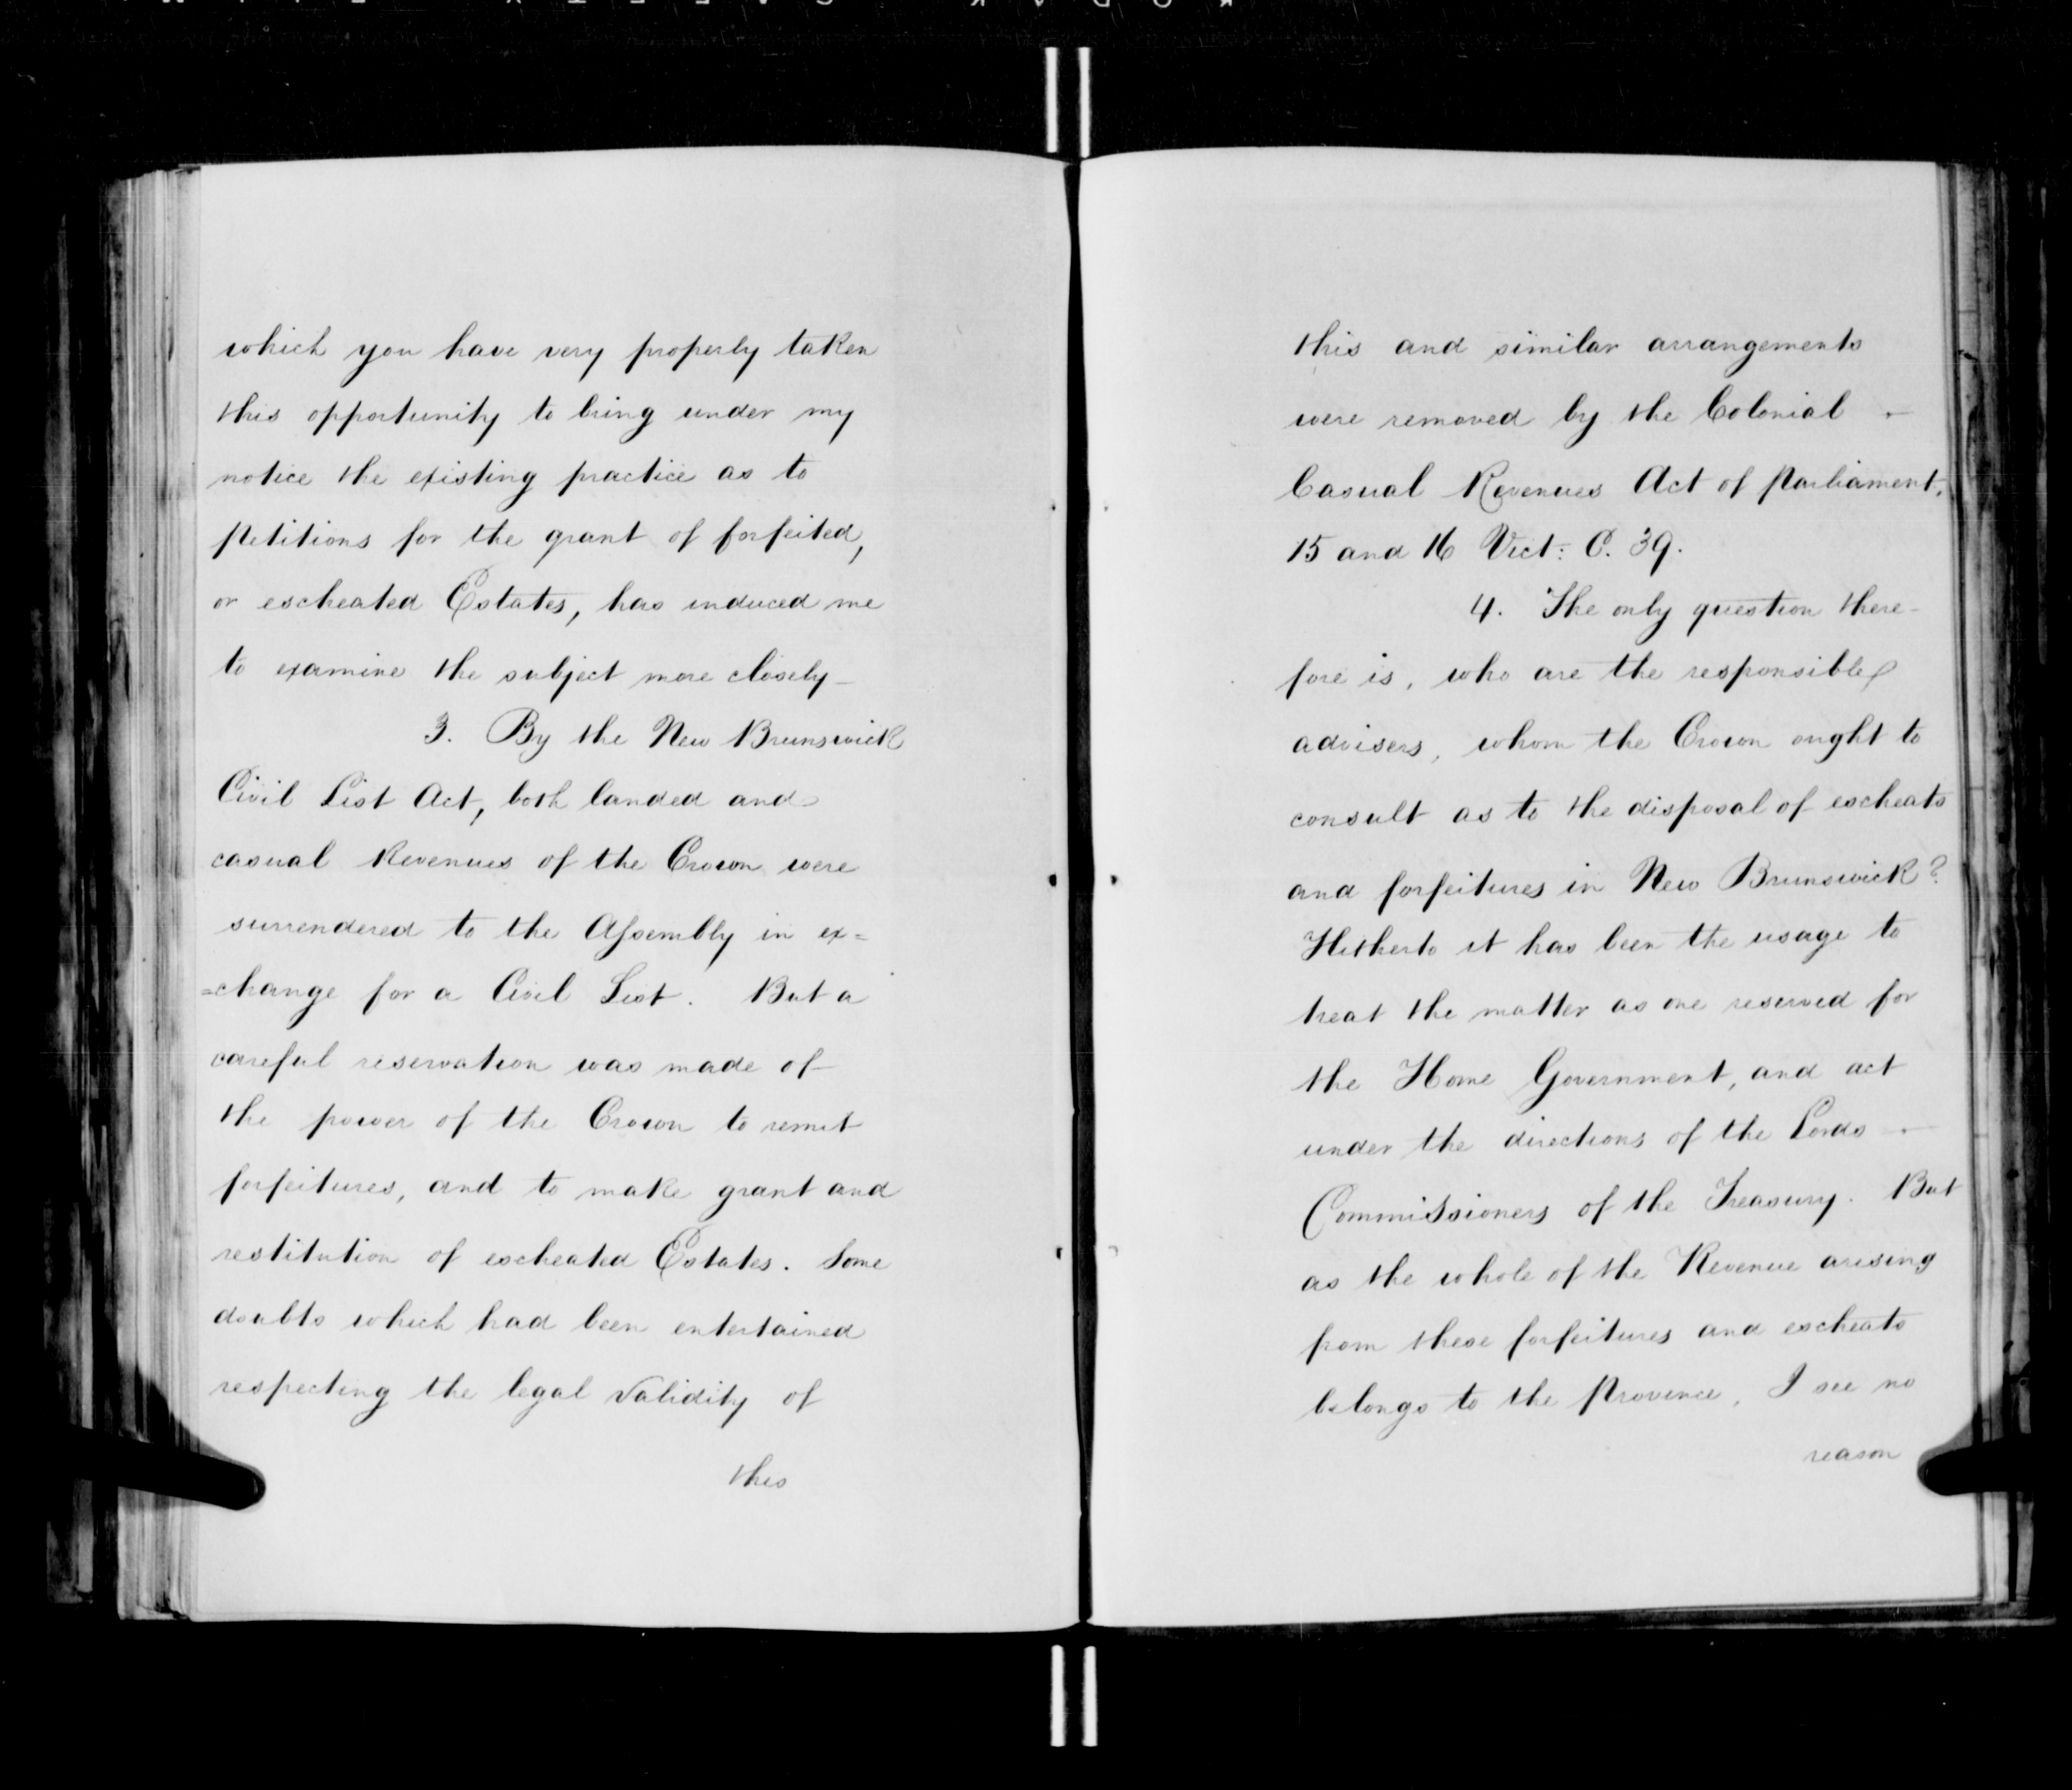 which you have very properly taken
this opportunity to bring under my
notice the existing practice as to
petitions for the grant of forfeited,
or escheated Estates, has induced me
to examine the subject more closely_
3. By the New Brunswick
Civil List Act, both landed and
casual Revenues of the Crown were
surrendered to the Assembly in ex=
=change for a Civil List. But a
careful reservation was made of
the power of the Crown to remit
forfeitures, and to make grant and
restitution of escheated Estates. Some
doubts which had been entertained
respecting the legal validity of
this
this and similar arrangements
were removed by the Colonial
Casual Revenues Act of Parliament,
15 and 16 Vict: C. 39.
4. The only question there-
fore is, who are the responsible
advisers, whom the Crown ought to
consult as to the disposal of escheats
and forfeitures in New Brunswick?
Hitherto it has been the usage to
treat the matter as one reserved for
the Home Government, and act
under the directions of the Lords
Commissioners of the Treasury. But
as the whole of the Revenue arising
from these forfeitures and escheats
belongs to the Province, I see no
reason